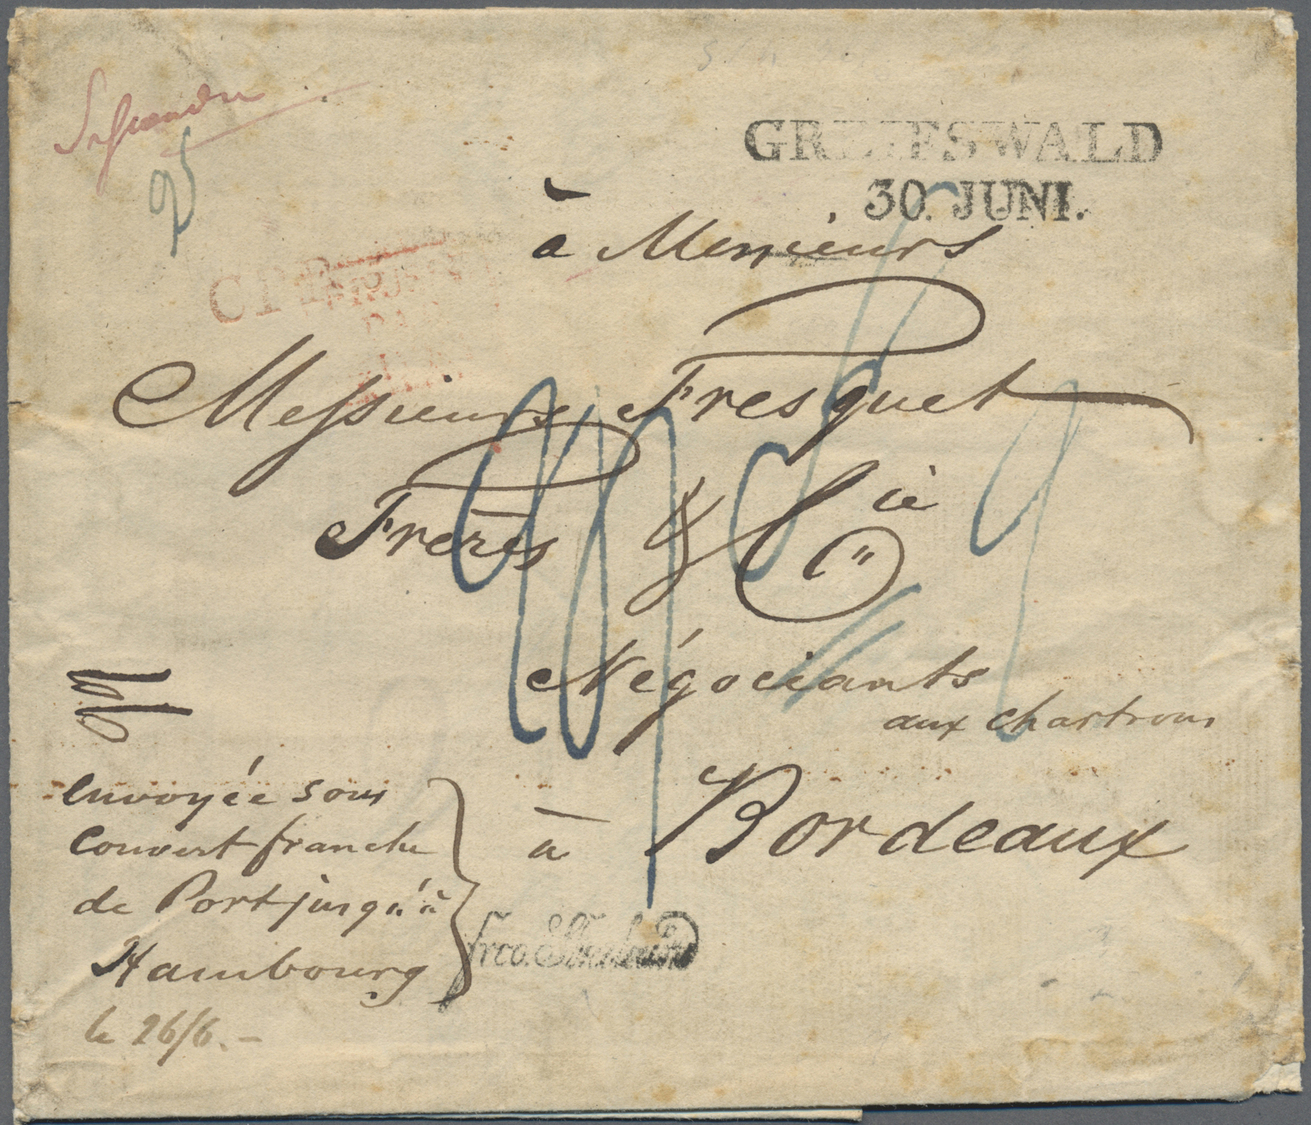 GREIFSWALD
30. JUNI.
25
à Messieurs
C.P.R.
Messieurs Fresquet
Frères & Cie
Négociants
aux chartrons
à Bordeaux
envoyée sous
couvert franche
de Port jusqu'à
Hambourg
le 26/6.-
frco.